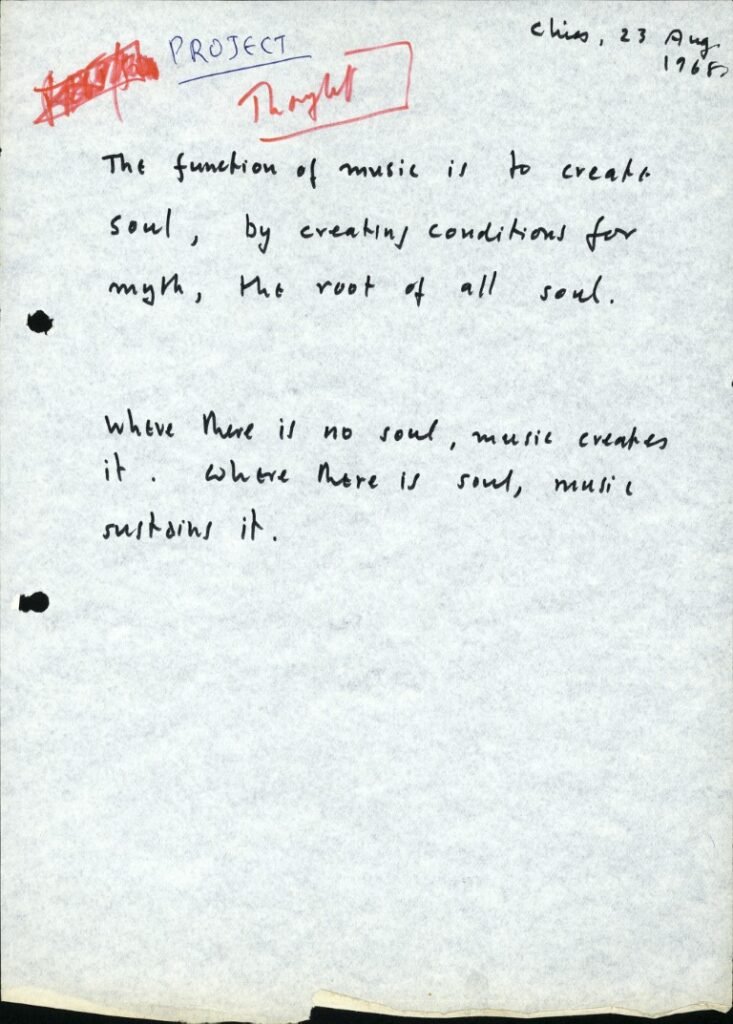 PROJECT
Thought
Chios, 23 Aug
1968
The function of music is to create
soul, by creating conditions for
myth, the root of all soul.
Where there is no soul, music creates
it. Where there is soul, music
sustains it.